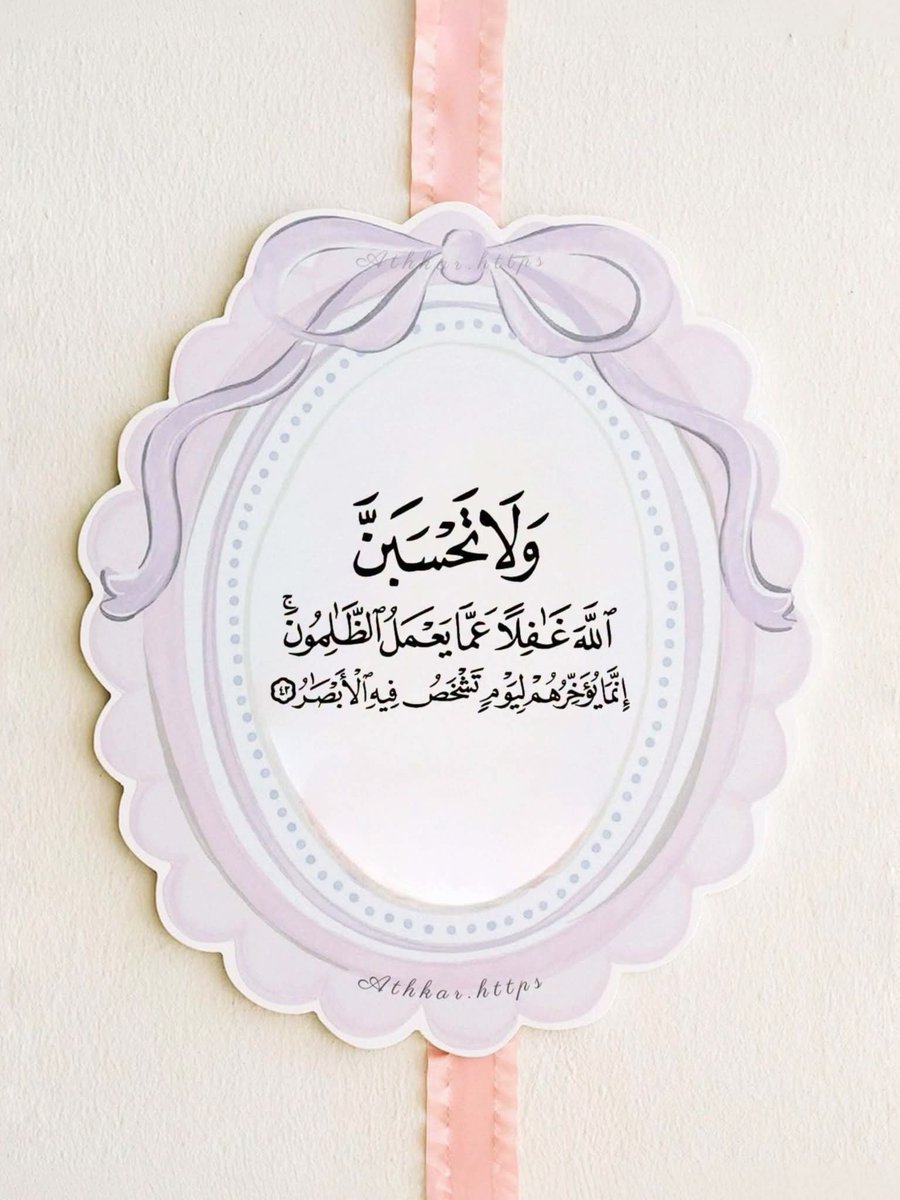 Athkar.https
وَلَا تَحْسَبَنَّ
ٱللَّهَ غَـٰفِلًا عَمَّا يَعْمَلُ ٱلظَّـٰلِمُونَ ۚ
إِنَّمَا يُؤَخِّرُهُمْ لِيَوْمٍ تَشْخَصُ فِيهِ ٱلْأَبْصَـٰرُ ٤٢
Athkar.https